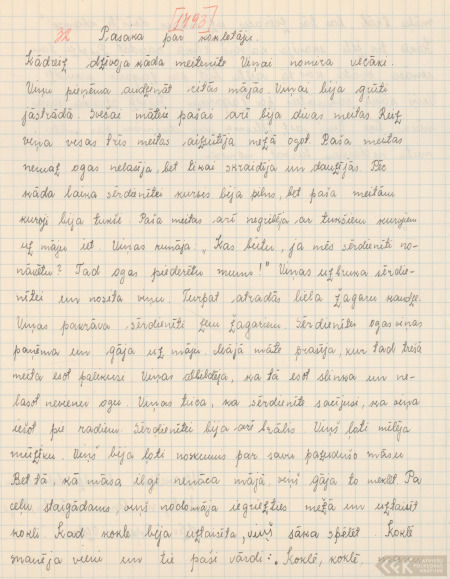 [1493]
32 Pasaka par kokletāju.
Kādreiz dzīvoja kāda meitenīte Viņai nomira vecāki.
Viņu pieņēma audzināt citās mājās. Viņai bija grūti
jāstrādā. Svešai mātei pašai arī bija divas meitas. Reiz
viņa visas trīs meitas aizsūtīja mežā ogot. Pašas meitas
nemaz ogas nelasīja, bet tikai skraidīja un dauzījās. Pēc
kāda laika sērdienītei kurvis bija pilns, bet pašas meitām
kurvji bija tukši. Pašas meitas arī negribēja ar tukšiem kurvjiem
uz māju iet. Viņas runāja: „Kas būtu, ja mēs sērdienīti no-
nāvētu? Tad ogas piederētu mums!" Viņas uzbruka sērdie-
nītei un nosita viņu. Turpat atradās liela žagaru kaudze.
Viņas pakrāva sērdienīti zem žagariem. Sērdienītes ogas viņas
paņēma un gāja uz māju. Mājā māte prasīja, kur tad trešā
meita esot palikusi. Viņas atbildēja, ka tā esot slinka un ne-
lasot nevienu ogu. Viņas tura, ka sērdienīte sacījusi, ka viņa
iešot pie radiem. Sērdienītei bija arī brālis. Viņš ļoti mīlēja
mūziku. Viņš bija ļoti noskumis par savu pazudušo māsu.
Bet tā, kā māsa ilgi nenāca mājā, viņš gāja to meklēt. Pa
ceļu staigādams, viņš nodomāja iegriezties mežā un uztaisīt
kokli. Kad kokle bija uztaisīta, viņš sāka spēlēt. Kokle
skanēja vieni un tie paši vārdi: „Koklē, koklē,